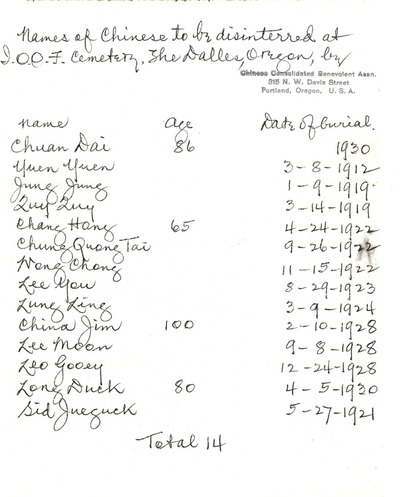 Names of Chinese to be disinterred at
I.O.O.F. Cemetery, The Dalles, Oregon, by
Chinese Consolidated Benevolent Assn.
315 N. W. Davis Street
Portland, Oregon, U. S. A.
Name Age Date of burial.
Chuan Dai 86 1930
Yuen Yuen 3-8-1912
Jung Jung 1-9-1919
Quy Quy 3-14-1919
Chang Hong 65 4-24-1922
Chung Quong Tai 9-26-1922
Wong Chong 11-15-1922
Lee You 8-29-1923
Lung Ling 3-9-1924
China Jim 100 2-10-1928
Lee Moon 9-8-1928
Leo Gooey 12-24-1928
Long Duck 80 4-5-1930
Sid Jueguck 5-27-1921
Total 14